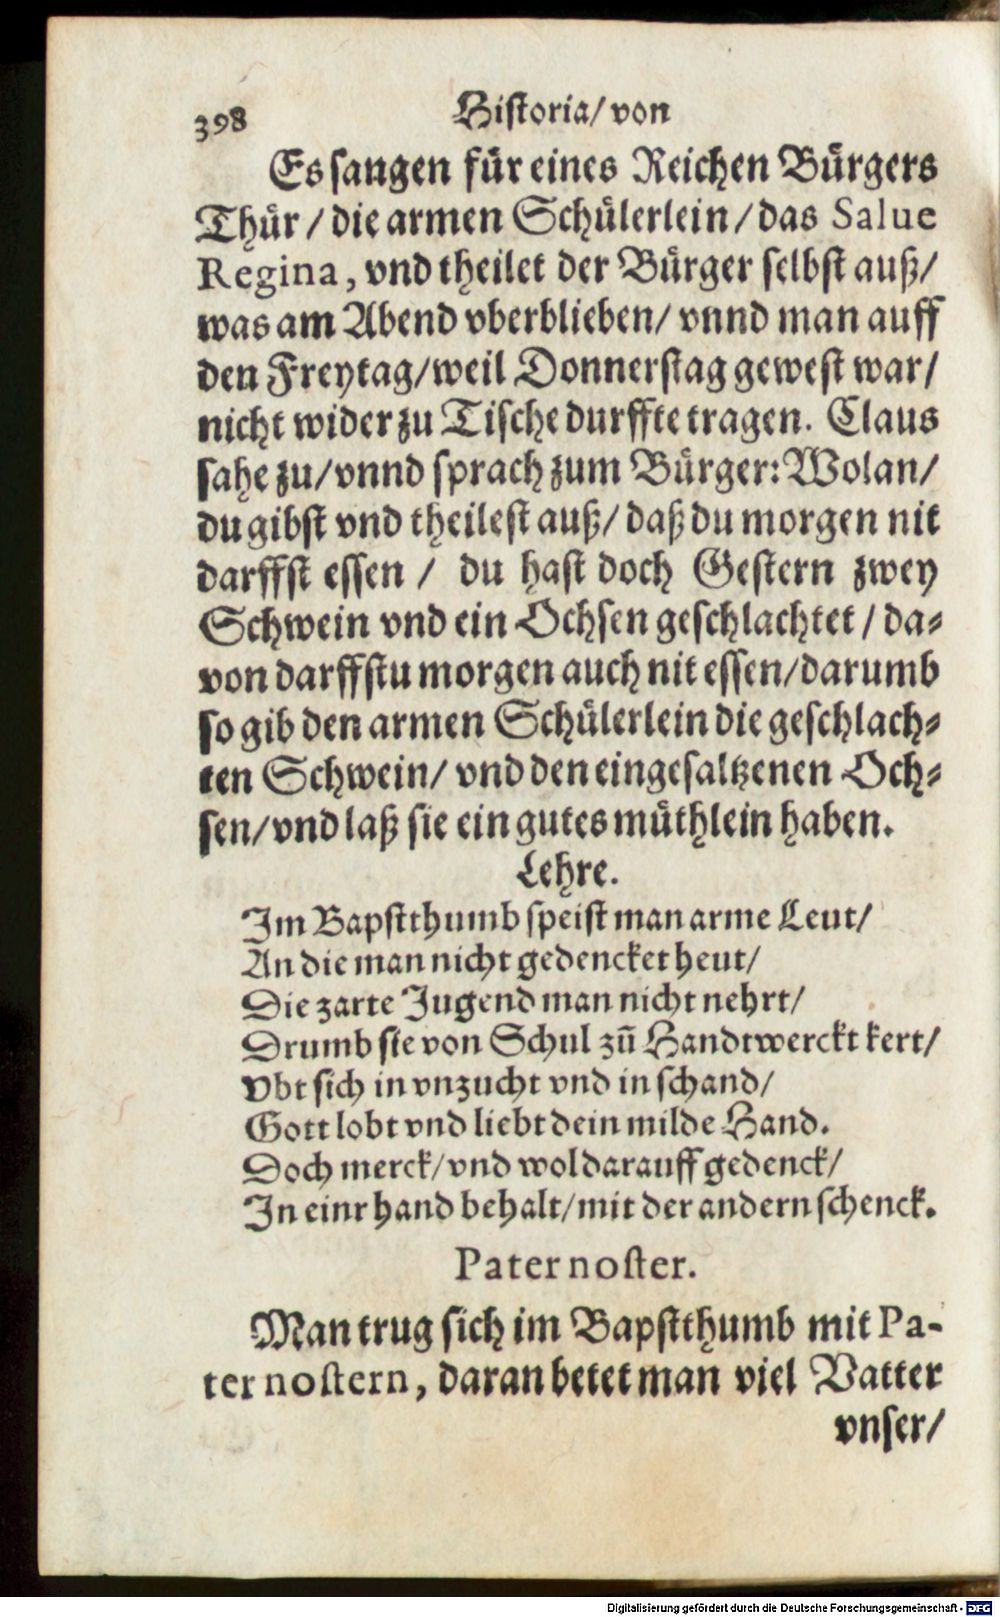 398 Historia/ von
Es sangen für eines Reichen Bürgers
Thür / die armen Schülerlein / das Salue
Regina, vnd theilet der Bürger selbst auß/
was am Abend vberblieben/ vnnd man auff
den Freytag/weil Donnerstag gewest war/
nicht wider zu Tische durffte tragen. Claus
sahe zu/vnnd sprach zum Bürger: Wolan/
du gibst vnd theilest auß/ daß du morgen nit
darffst essen / du hast doch Gestern zwey
Schwein vnd ein Ochsen geschlachtet / da-
von darffstu morgen auch nit essen/darumb
so gib den armen Schülerlein die geschlach-
ten Schwein/ vnd den eingesaltzenen Och-
sen/vnd laß sie ein gutes müthlein haben.
Lehre.
Im Bapstthumb speist man arme Leut/
An die man nicht gedencket heut/
Die zarte Jugend man nicht nehrt/
Drumb sie von Schul zū Handtwerckt kert/
Vbt sich in vnzucht vnd in schand/
Gott lobt vnd liebt dein milde Hand.
Doch merck/vnd wol darauff gedenck/
In einr hand behalt/mit der andern schenck.
Pater noster.
Man trug sich im Bapstthumb mit Pa-
ter nostern, daran betet man viel Vatter
vnser/
Digitalisierung gefördert durch die Deutsche Forschungsgemeinschaft - DFG